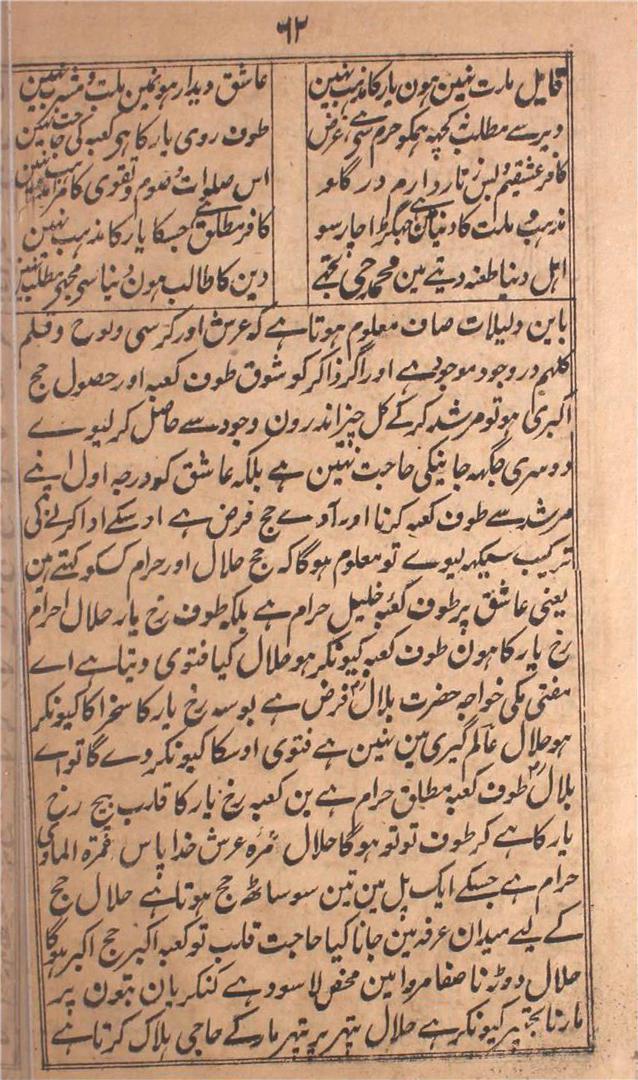 ٦٢
قایل ملت نہین ہون یار کا مذہب نہین
عاشق دیدار ہونمین ملت و مشرب نہین
دیر سے مطلب کچہہ ہمکو حرم سی غرض
طوف روی یار کا ہر کعبہ کی حاجت نہین
کافر عشقیم و لیس زنار دارم در گلو
اس صلوات و صوم و تقوی کا
مذہب و ملت کا دنیا جہگڑا چارسو
کافر مطلق ہے جسکا یار کا مذہب نہین
اہل دنیا طعنہ دیتے ہین محمد چمن تجھے
دین کا طالب ہون دنیا سی مجھی مطلب نہین
باین دلیلات صاف معلوم ہوتا ہے کہ عرش اور کرسی و لوح و قلم
کلہم در وجود موجود ہے اور اگر ذاکر کو شوق طوف کعبہ اور حصول حج
اکبری ہو تو مرشد کرکے کل چیز اندرون وجود سے حاصل کرلیوے
دوسری جگہہ جانیکی حاجت نہین ہے بلکہ عاشق کو درجہ اول اپنے
مرشد سے طوف کعبہ کرنا اور آدے حج فرض ہے اوسکے ادا کرنے کی
ترکیب سیکہہ لیوے تو معلوم ہوگا کہ حج حلال اور حرام کسکو کہتے ہین
یعنی عاشق پر طوف کعبہ خلیل حرام ہے بلکہ طوف رخ یار حلال احرام
رخ یار کا ہون طوف کعبہ کیونکر ہو حلال کیا فتوی دیتا ہے اے
مفتی مکی خواجہ حضرت بلال فرض ہے بوسہ رخ یار کا سنحرا کا کیونکر
ہو حلال عالمگیری مین نہین ہے فتوی اوسکا کیونکر دے گا تو اے
بلال طوف کعبہ مطلق حرام ہے بن کعبہ رخ یار کا قارب بیچ رخ
یار کا ہے کر طوف تو تو ہوگا حلال ثمرہ عرش خدا پاس ثمرۃ الماوی
حرام ہے جسکے ایک پل مین تین سو ساٹھ حج ہوتا ہے حلال حج
کے لیے میدان عرفہ مین جانا کیا حاجت قلب تو کعبہ اکبر حج اکبر ہوگا
حلال دوڑنا صفا مروا مین محض لا سود ہے کنکریان بتون پر
مارنا پتھر کیونکر ہے حلال پتہر پر پتہر مارکے حاجی ہلاک کرتا ہے